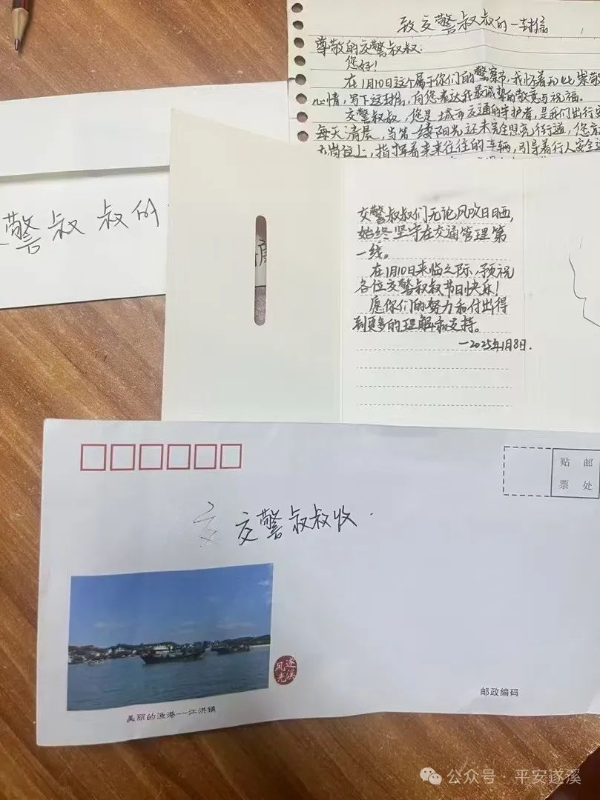 致交警叔叔的一封信
尊敬的交警叔叔:
您好!
在1月10日这个属于你们的警察节,我怀着无比崇敬
心情,写下这封信,向您表达我最诚挚的敬意与祝福。
交警叔叔,您是城市交通的守护者,是我们出行安
每天清晨,当第一缕阳光还未完全照亮街道,您
岗位上,指挥着来来往往的车辆,引导着行人安全
警叔叔的
交警叔叔们无论风吹日晒,
始终坚守在交通管理第
一线。
在1月10日来临之际,预祝
各位交警叔叔节日快乐!
愿你们的努力和付出得
到更多的理解和支持。
一2025年1月8日.
贴邮
票处
交 交警叔叔收.
遂溪
风光
美丽的渔港--江洪镇
邮政编码
公众号·平安遂溪